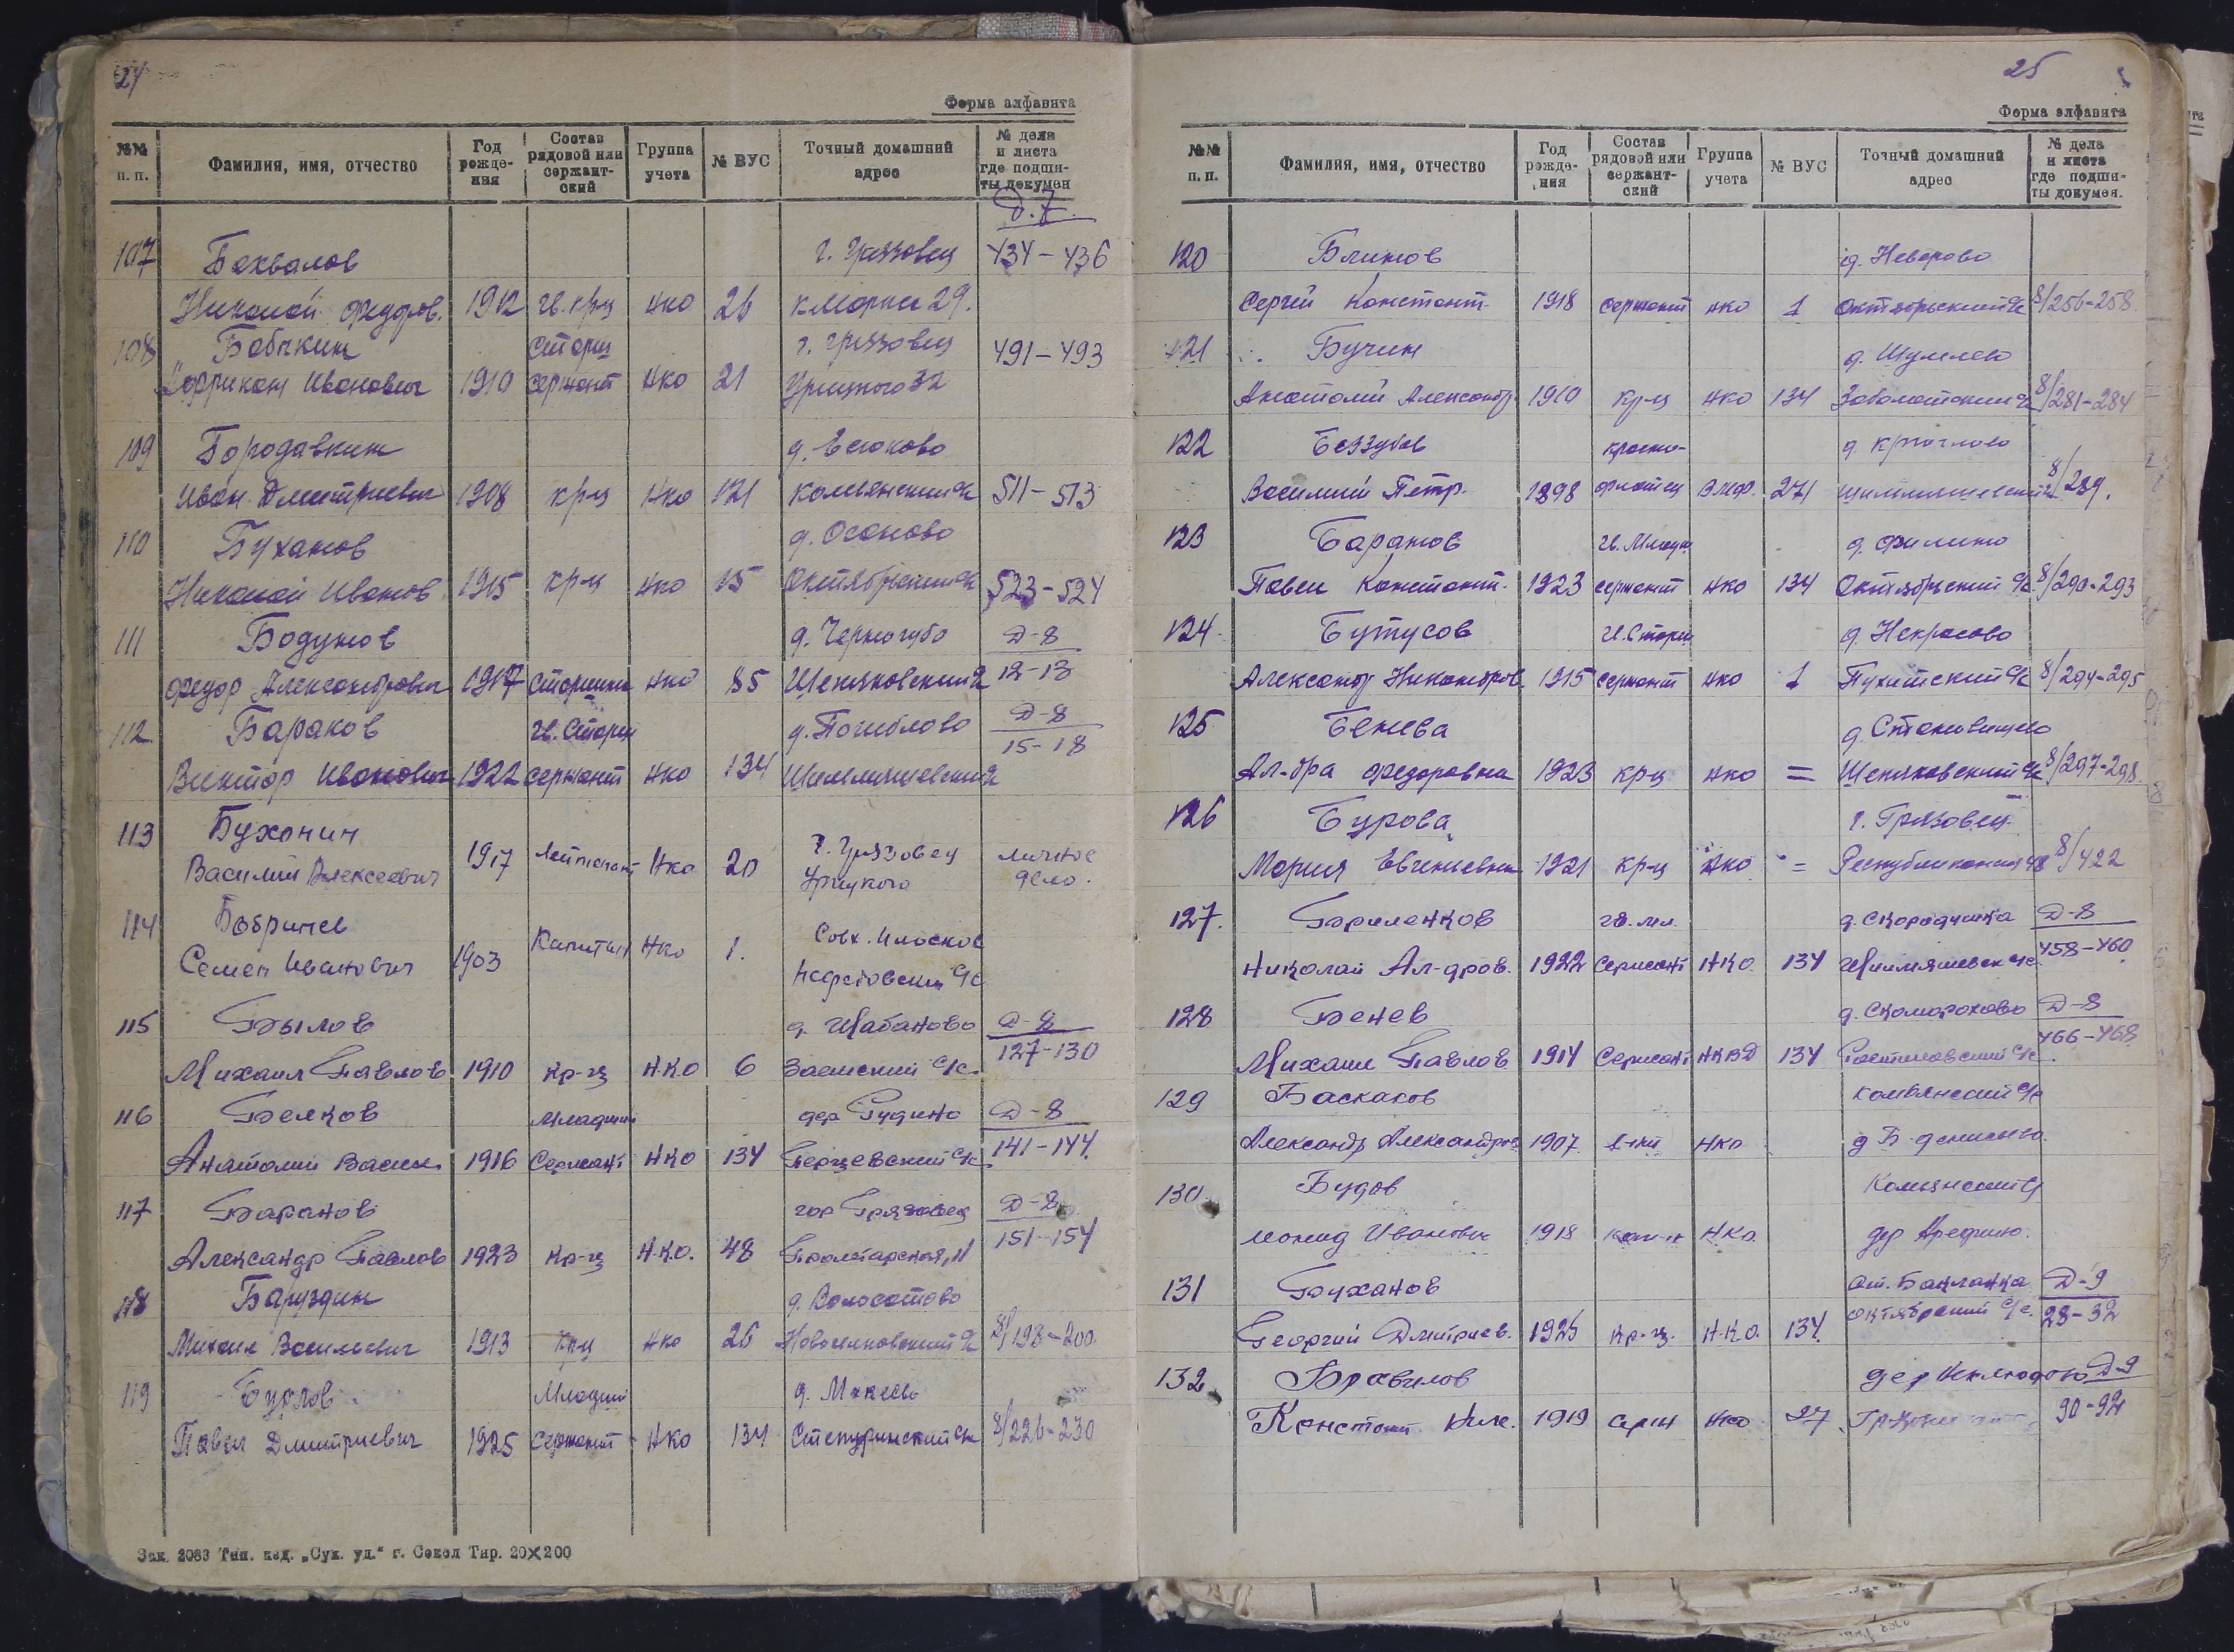 24
Форма алфавита
№№ п. п. Фамилия, имя, отчество Год рожде-ния Состав рядовой или сержант-ский Группа учета № ВУС Точный домашний адрес № дела и листа где подши-ты докумен
Д. 7.
107 Бахвалов г. Грязовец 434-436
Николай Федоров. 1912 гв. кр-ц НКО 26 К Маркса 29.
108 Бабичкин Старш г. Грязовец 491-493
Иванович 1910 сержант НКО 21 Урицкого 32
109 Бородавкин д. Есюково
Иван Дмитриевич 1908 кр-ц НКО 121 Комьянский с/с 511-513
110 Буханов д. Осаново
Николай Иванов 1915 кр-ц НКО 15 Октябрьский с/с 523-524
111 Бодунов д. Черногубо Д-8
Федор Александрович 1917 старшина НКО 85 Щепяковский 12-13
112 Бараков гв. Старш д. Погиблово Д-8
15-18
Виктор Иванович 1922 сержант НКО 134
113 Бухонин г. Грязовец личное
Василий Алексеевич 1917 Лейтенант НКО 20 Урицкого дело.
114 Бобричев Капитан Совх.
Семен Иванович 1903 НКО 1. с/с
115 Былов д. Шабаново Д-8
127-130
Михаил Павлов 1910 кр-ц Н.К.О 6 Заемский с/с.
116 Белков Младший дер Рудино Д-8
Анатолий Васил. 1916 Сержант НКО 134 Перцевский с/с 141-144.
117 Баранов гор Грязовец Д-8
Александр Павлов 1923 кр-ц Н.К.О. 48 Пролетарская, 11 151-154
118 Баруздин д. Волосатово
Михаил Васильевич 1913 кр-ц НКО 26 Новоселковский 8/198-200
119 Бурлов Младший д. Макеево
Павел Дмитриевич 1925 Сержант НКО 134 Степуринский с/с 8/226-230
Зак. 2083 Тип. изд. „Сух. уд.“ г. Сокол Тир. 20×200
25
Форма алфавита
№№ п. п. Фамилия, имя, отчество Год рожде-ния Состав рядовой или сержант-ский Группа учета № ВУС Точный домашний адрес № дела и листа где подши-ты докумен.
120 Блинов д. Неверово
Сергей Констант. 1918 сержант НКО 1 Октябрьский с/с 8/256-258
121 Бучин д. Шумлево
Анатолий Александр. 1910 кр-ц НКО 134 Заболотский с/с 8/281-284
122 Беззубов красно- д. Круглово
Василий Петр. 1898 флотец ВМФ. 271 8/289.
123 Баранов гв. Младш д. Филино
Павел Констант. 1923 сержант НКО 134 Октябрьский с/с. 8/290-293
124 Бутусов гв. Старш д. Некрасово
Александр Никаноров 1915 сержант НКО 1 Пухитский с/с 8/294-295
125 Бенева д. Становищево
Ал-дра Федоровна 1923 кр-ц НКО = Щепяковский с/с 8/297-298
126 Бурова г. Грязовец
Мария Евгеньевна 1921 кр-ц НКО = Республиканская 48 8/422
127. Бариленков гв. мл. д. Скородумка Д-8
Николай Ал-дров. 1922 Сержант НКО. 134 с/с 458-460
128 Бенев д. Скоморохово Д-8
466-468
Михаил Павлов 1914 Сержант НКВД 134 Ростиловский с/с.
129 Баскаков Комьянский с/с
Александр Александров 1907 НКО д Б. Денисьево.
130. Будов
Леонид Иванович 1918 НКО. дер Арефино.
131 Буханов ст. Бакланка Д-9
Георгий Дмитриев. 1925 кр-ц. Н.К.О. 134. Октябрский с/с. 28-32
132 Бравилов дер Неклюдово Д-9
Констант 1919 НКО 27 90-92